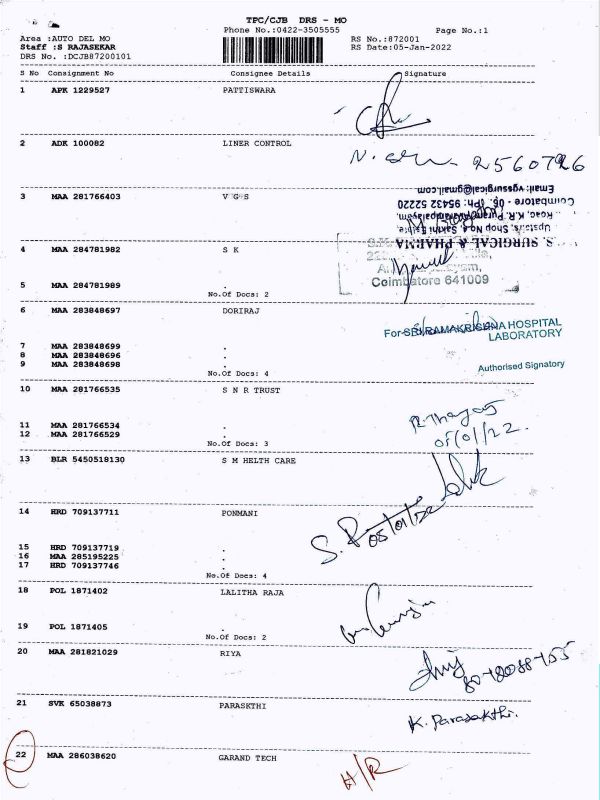 TPC/CJB DRS - MO
Phone No.:0422-3505555 Page No.:1
Area :AUTO DEL MO RS No.:872001
Staff :S RAJASEKAR RS Date:05-Jan-2022
DRS No. :DCJB87200101
S No Consignment No Consignee Details Signature
1 APK 1229527 PATTISWARA
2 ADK 100082 LINER CONTROL
2560726
3 MAA 281766403 V G S
Email: vgssurgical@gmail.com
Coimbatore - 06. Ph: 95432 52220
Upstairs, Shop No.4, Sakthi Estate
S. SURGICAL & PHARMA
4 MAA 284781982 S K
5 MAA 284781989 .
Coimbatore 641009
No.Of Docs: 2
6 MAA 283848697 DORIRAJ
For SRI RAMAKRISHNA HOSPITAL
LABORATORY
7 MAA 283848699 .
8 MAA 283848696 .
9 MAA 283848698 .
Authorised Signatory
No.Of Docs: 4
10 MAA 281766535 S N R TRUST
11 MAA 281766534 .
12 MAA 281766529 .
05/01/22.
No.Of Docs: 3
13 BLR 5450518130 S M HELTH CARE
14 HRD 709137711 PONMANI
15 HRD 709137719 .
16 MAA 285195225 .
17 HRD 709137746 .
No.Of Docs: 4
18 POL 1871402 LALITHA RAJA
19 POL 1871405 .
No.Of Docs: 2
20 MAA 281821029 RIYA
21 SVK 65038873 PARASKTHI
K. Parasakthi.
22 MAA 286038620 GARAND TECH
H/R